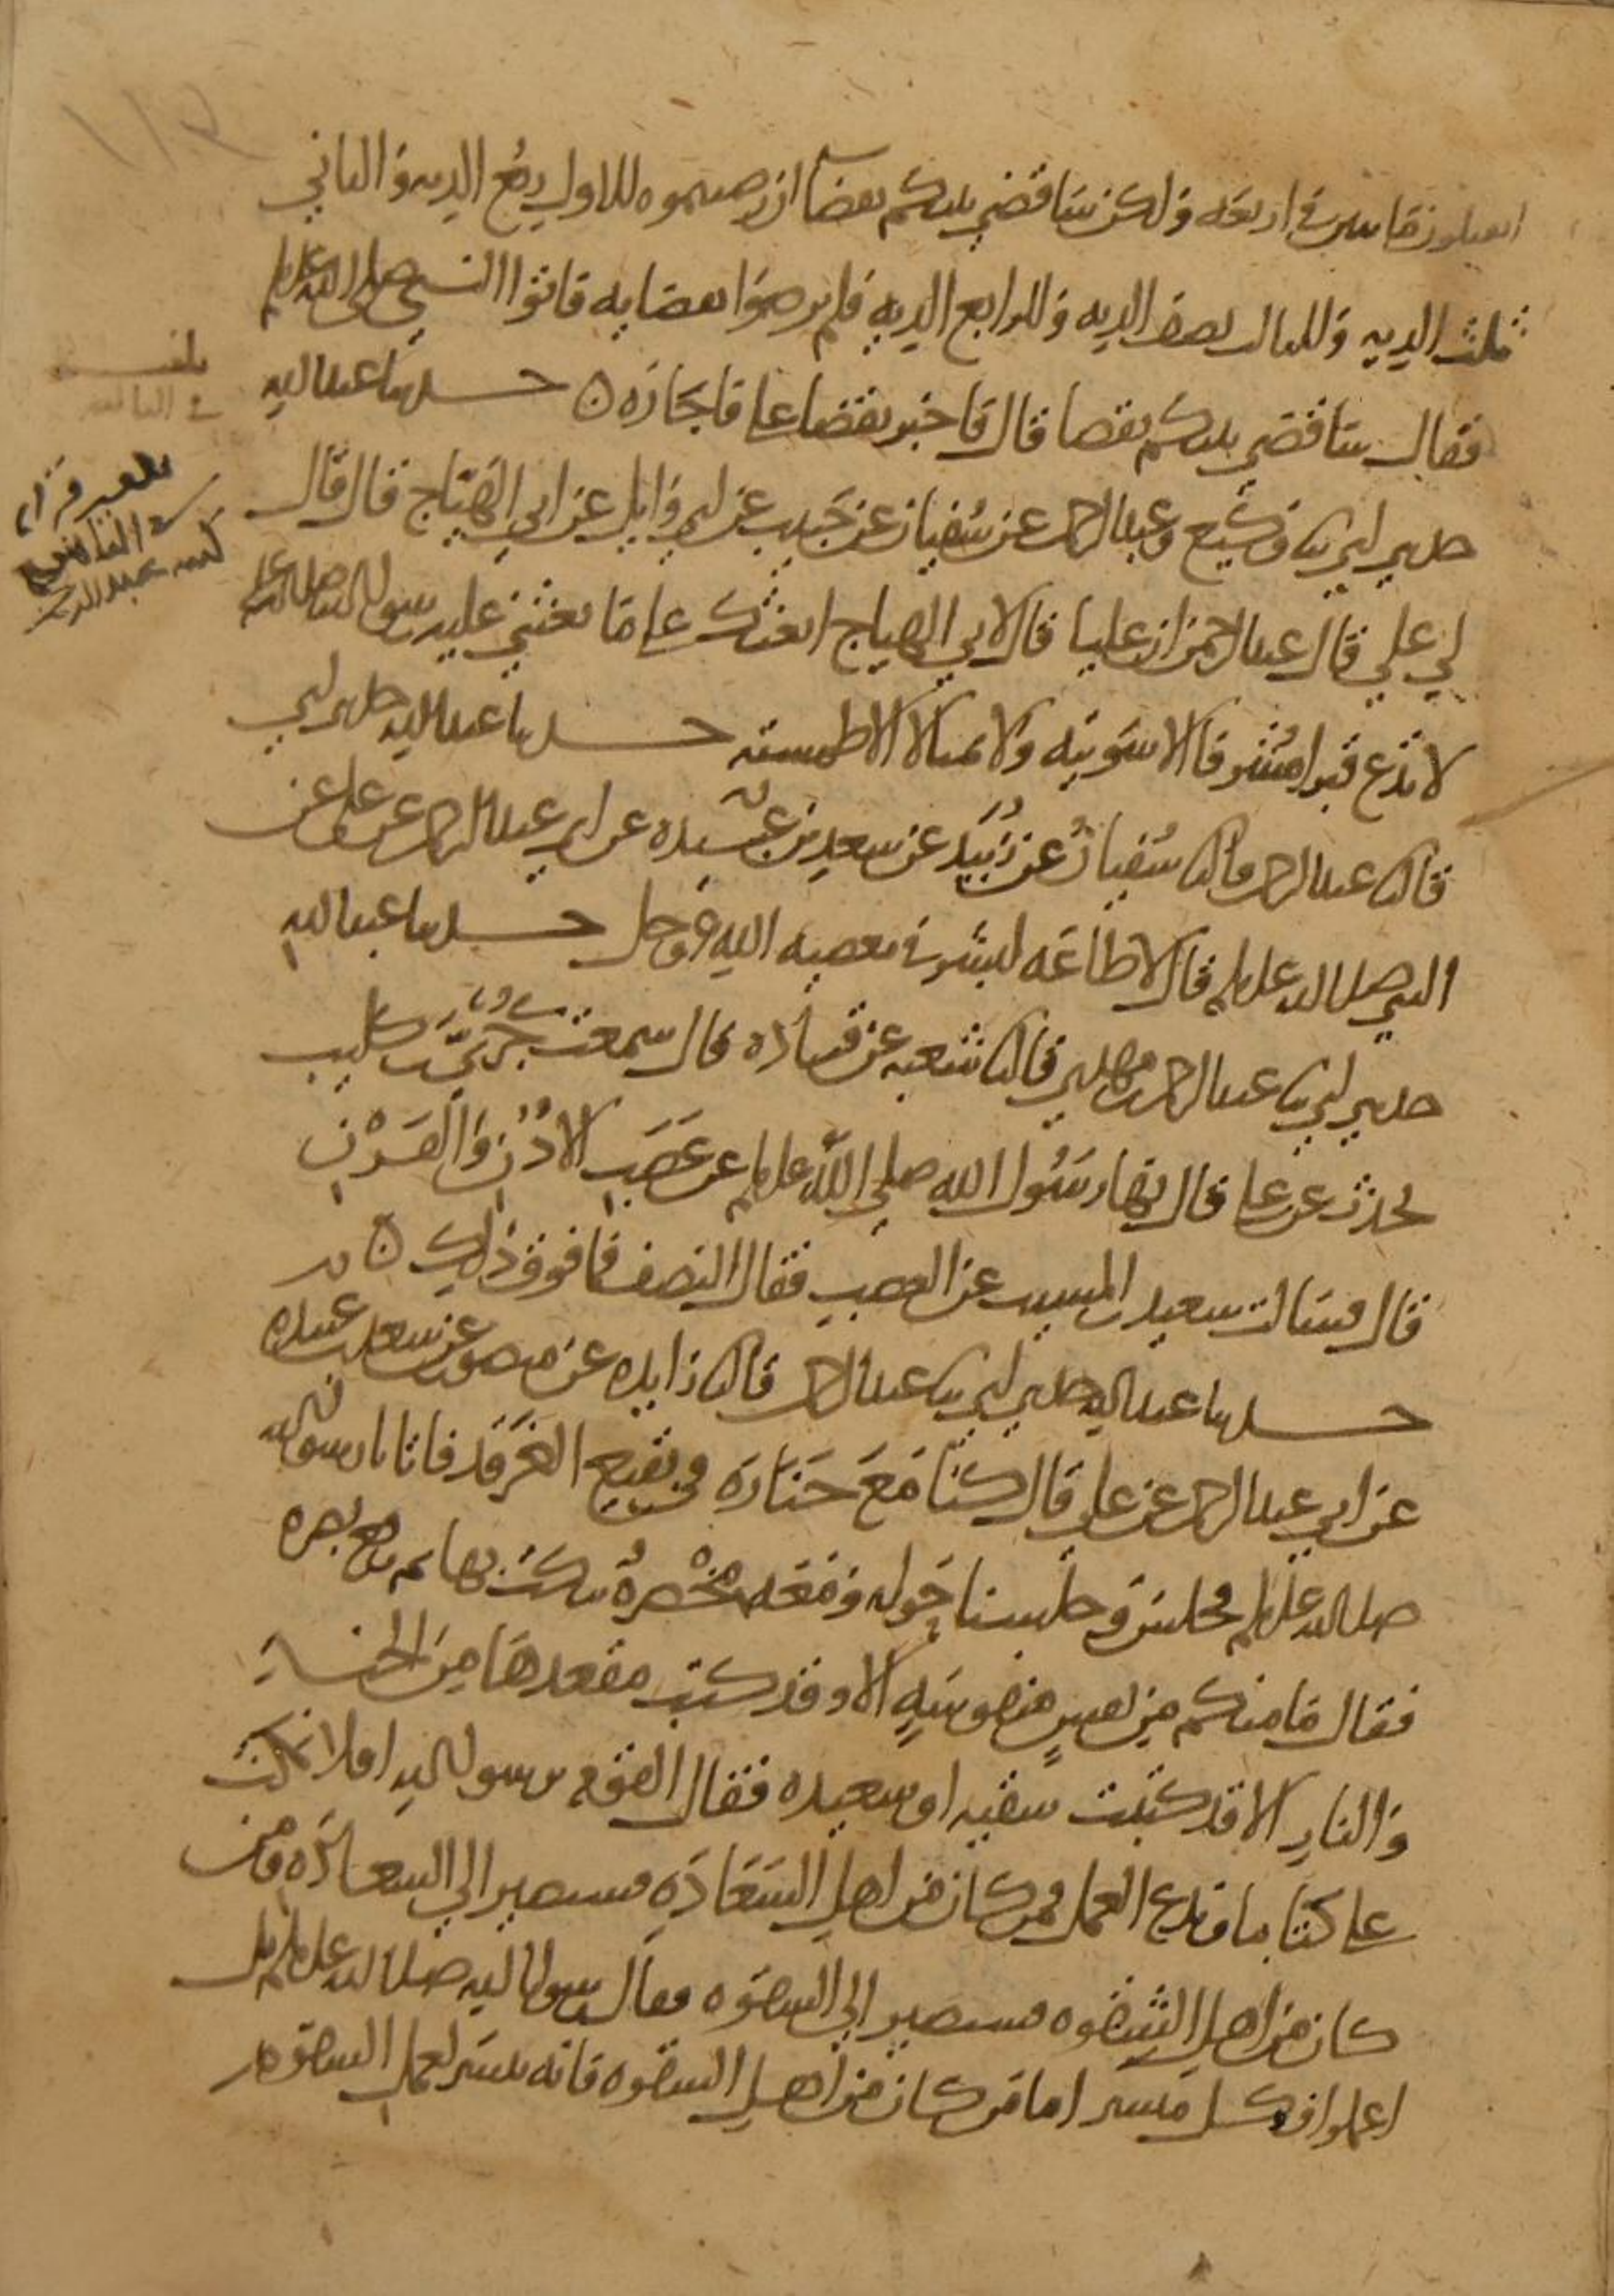 اتقتلون مائتين في اربعه ولكن ساقضي بينكم بقضا ان رضيتموه للاول ربع الديه وللثاني
ثلث الديه وللثالث نصف الديه وللرابع الديه فلم يرضوا بقضايه فاتوا النبي صلى الله عليه وسلم
فقال ساقضي بينكم بقضا قال فاخبر بقضا علي فاجازه ه حدثنا عبد الله
حدثني ابي ثنا وكيع وعبد الرحمن عن سفيان عن حبيب عن ابي وايل عن ابي الهياج قال قال
لي علي قال عبد الرحمن ان عليا قال لابي الهياج ابعثك على ما بعثني عليه رسول الله صلى الله عليه وسلم
لا تدع قبرا مشرفا الا سويته ولا تمثالا الا طمسته حدثنا عبد الله حدثني ابي
قال ثنا عبد الرحمن قال ثنا سفيان عن زبيد عن سعد بن عبيده عن ابي عبد الرحمن عن علي عن
النبي صلى الله عليه وسلم قال لا طاعه لبشر في معصيه الله عز وجل حدثنا عبد الله
حدثني ابي ثنا عبد الرحمن بن مهدي قال ثنا شعبه عن قتاده قال سمعت جري بن كليب
يحدث عن علي قال نها رسول الله صلى الله عليه وسلم عن عضب الاذن والقرن
قال فسالت سعيد بن المسيب عن العضب فقال النصف فما فوق ذلك ه
حدثنا عبد الله حدثني ابي ثنا عبد الرحمن قال ثنا زايده عن منصور عن سعد بن عبيده
عن ابي عبد الرحمن عن علي قال كنا مع جنازه في بقيع الغرقد فاتانا رسول الله
صلى الله عليه وسلم فجلس وجلسنا حوله ومعه مخصرة ينكت بها ثم رفع بصره
فقال ما منكم من نفس منفوسة الا وقد كتب مقعدها من الجنة
والنار الا قد كتبت شقيه او سعيده فقال القوم يرسول الله افلا نمكث
على كتابنا وندع العمل فمن كان من اهل السعادة فسيصير الي السعادة ومن
كان من اهل الشقوه فسيصير الي الشقوه فقال رسول الله صلى الله عليه وسلم بل
اعملوا فكل ميسر اما من كان من اهل الشقوه فانه ييسر لعمل الشقوه
بلغت
في الثالث